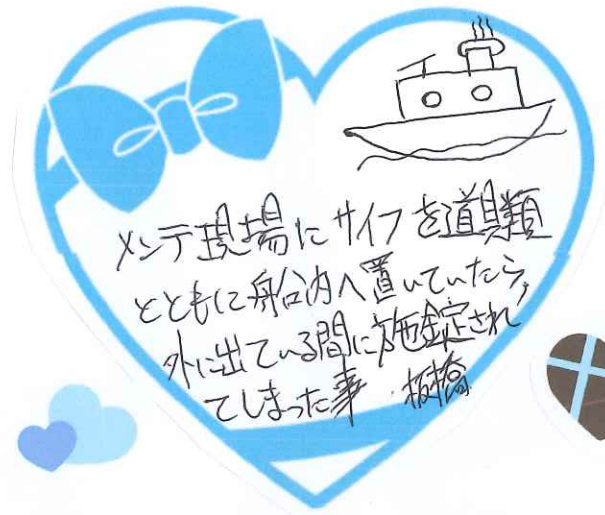 メンテ現場にサイフを道具類
とともに船内へ置いていたら、
外に出ている間に施錠され
てしまった事 板橋